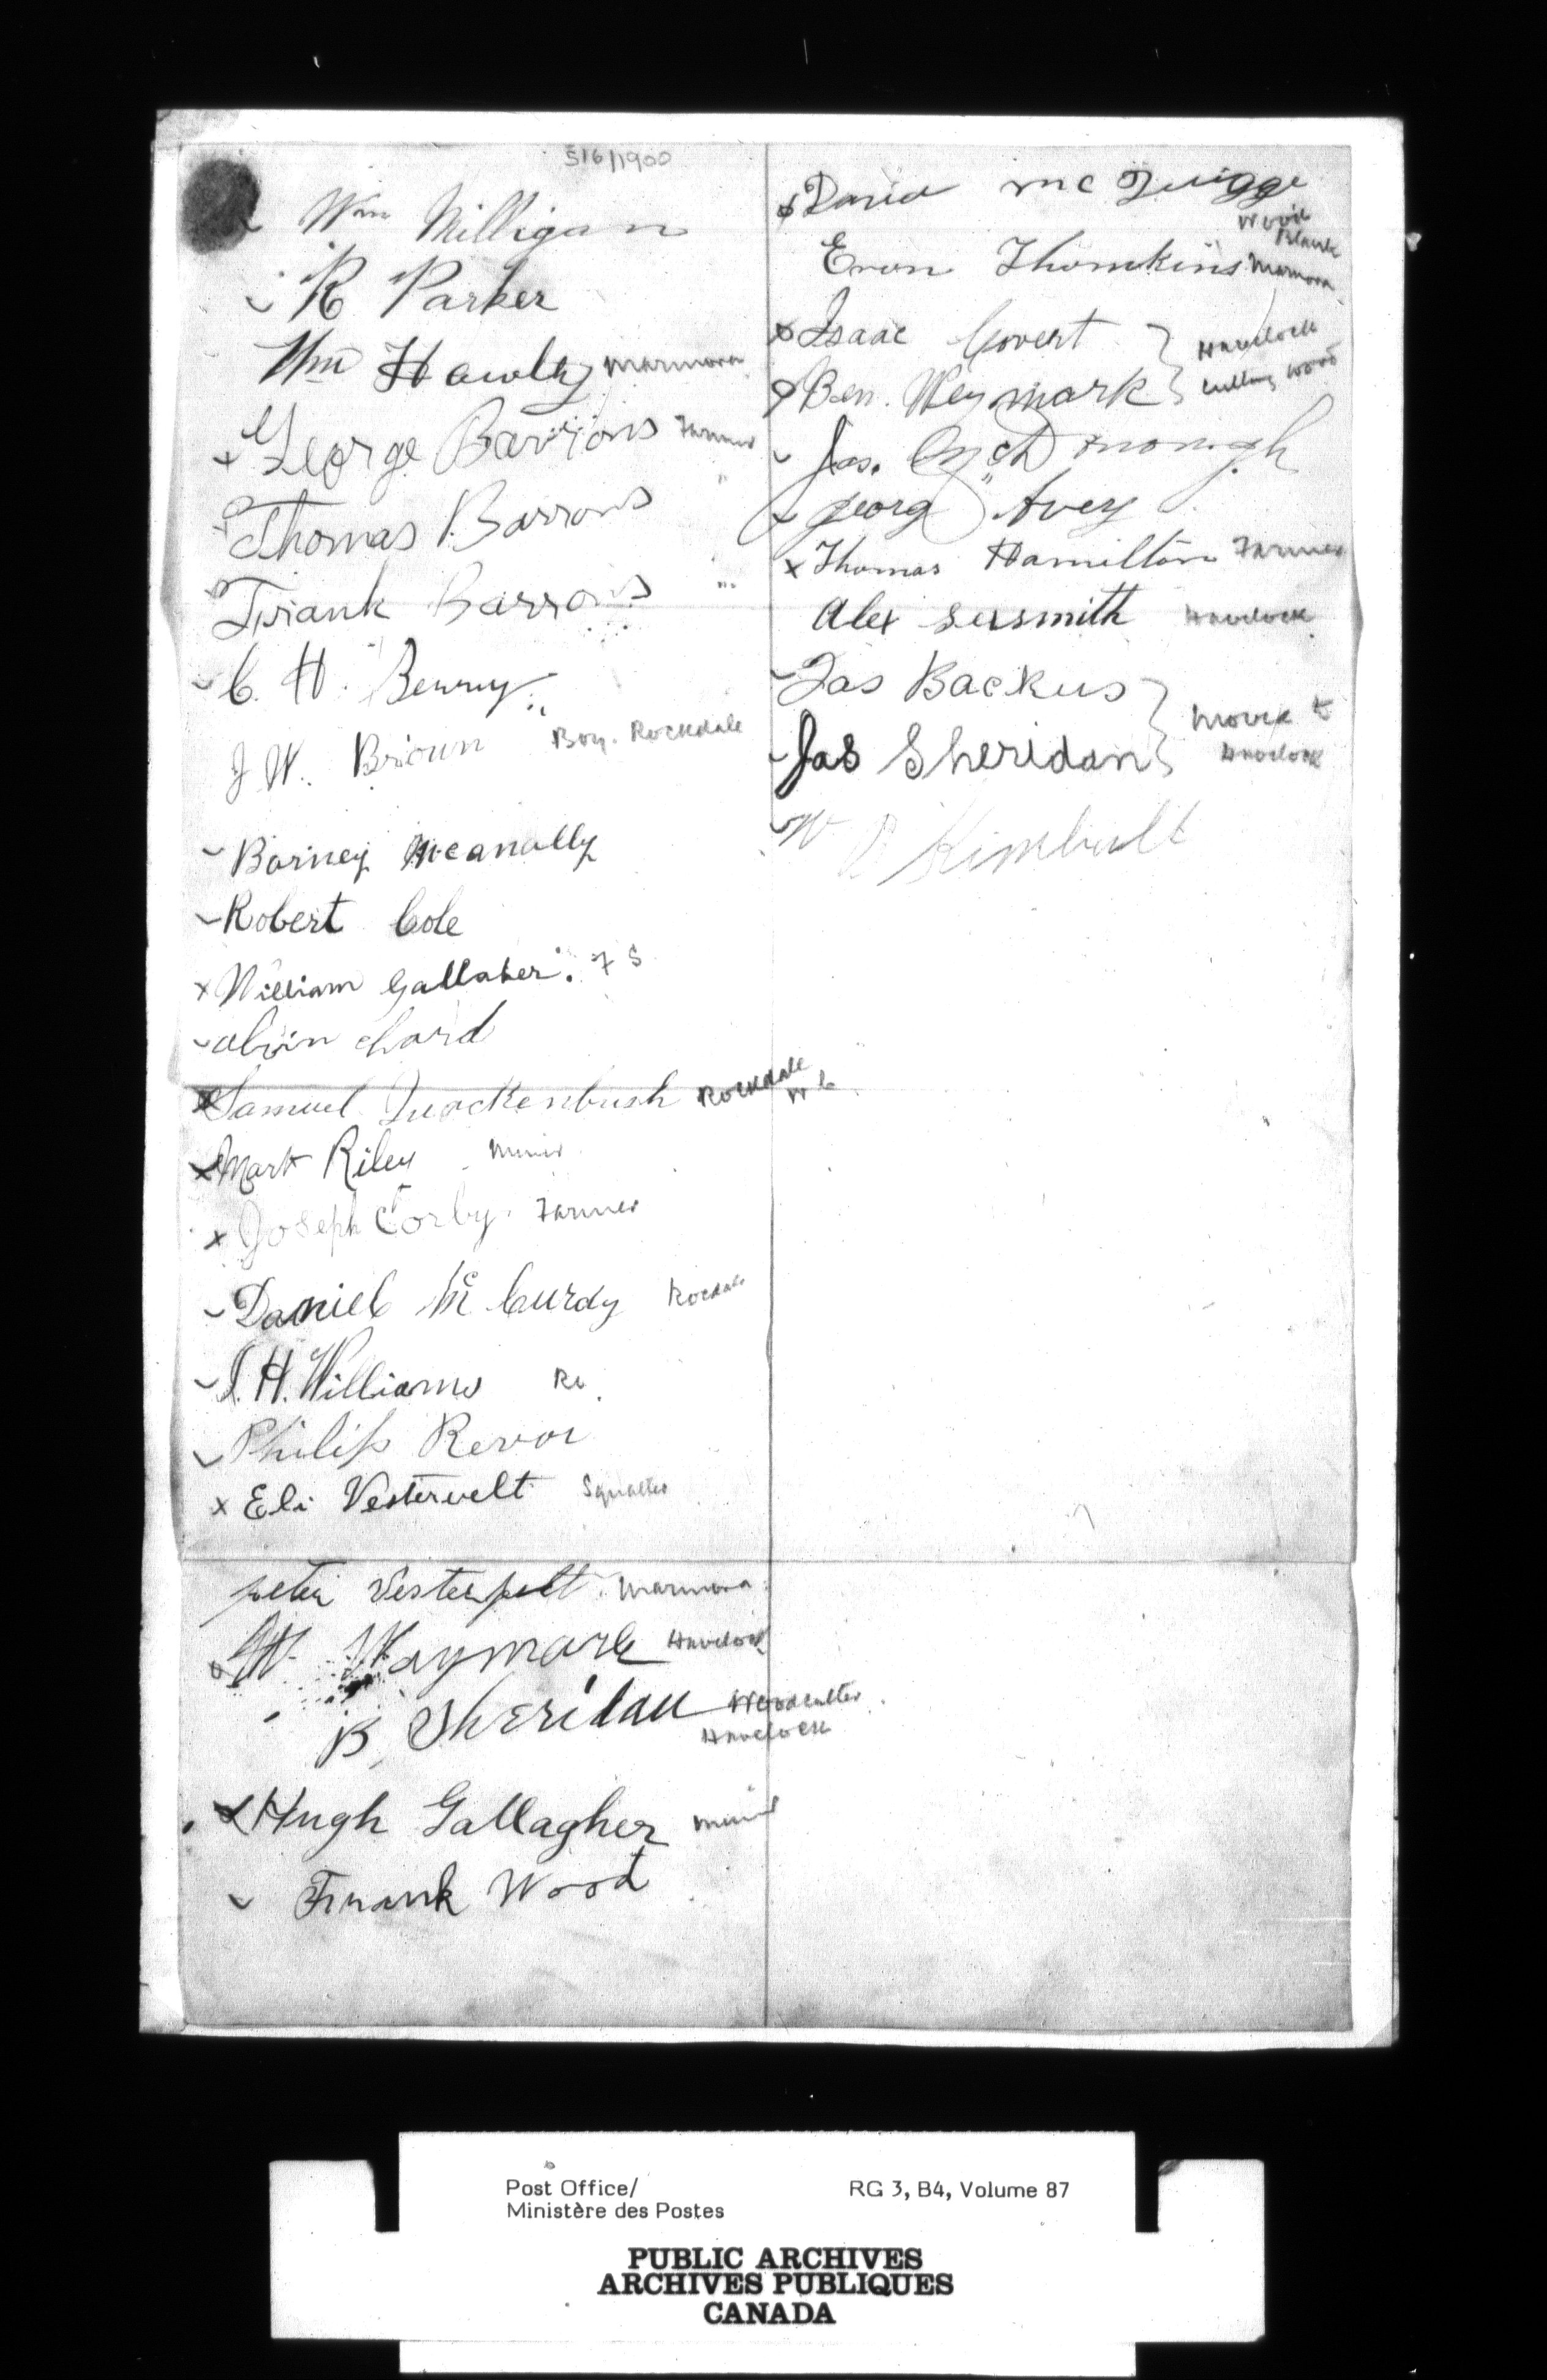 516/1900
Wm Milligan
R Parker
Wm Hawley Marmora
x George Barrons Farmer
Thomas Barrons "
Frank Barrons "
C. H. Berry
J W. Brown Boy. Rockdale
Barney Mcanally
Robert Cole
x William Gallaher. F S
alvin chard
x Samuel Quackenbush Rockdale
W C
x Mark Riley Miner
x Joseph Corby. Farmer
Daniel Mc Curdy Rocdale
J. H. Williams Ro
Philip Revoi
x Eli Vestervelt Squatter
peter Vestervelt Marmora
W. Waymark Havelock
B Sheridan Woodcutter
Havelock
x Hugh Gallagher Miner
Frank Wood
x David Mc Quigge
Wood
Blairton
Eron Thomkins Marmora
x Isaac Covert } Havelock
x Ben. Weymark } Cutting wood
Jas. McDonough
x georg Avery
x Thomas Hamilton Farmer
Alex sexsmith Havelock
Jas Backus } Moved to
Jas Sheridan } Havelock
W Kimball
Post Office/ RG 3, B4, Volume 87
Ministère des Postes
PUBLIC ARCHIVES
ARCHIVES PUBLIQUES
CANADA